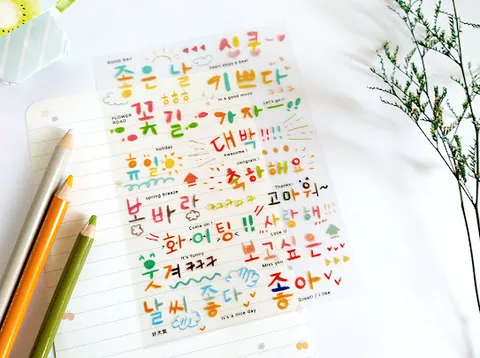 GOOD DAY
좋은 날
심쿵
heart skips a beat
기쁘다
in a good mood
꽃길
FLOWER ROAD
흥흥흥
가자--!!
Let's go!!
대박!!!!
awesome!
holiday
휴일
congrats!
축하해요
spring breeze
봄바람
Thanks~
고마워~
Come on!
화이팅!!
사랑해
Love
It's funny
웃겨ㅋㅋㅋ
보고싶은
Miss you
날씨 좋다
好天氣
It's a nice day
좋아
Great! / like